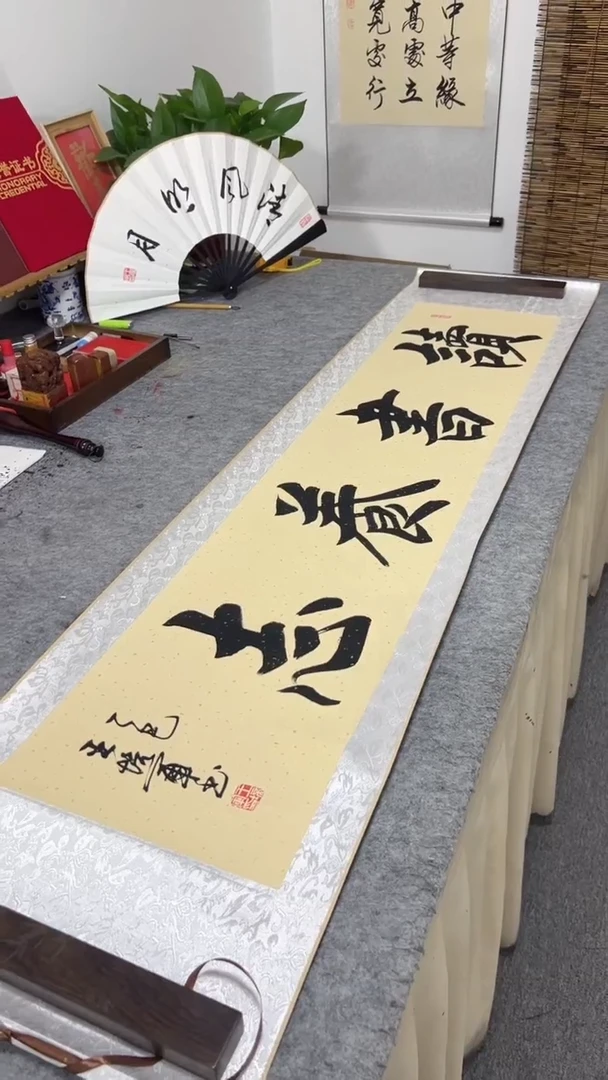 中等緣
高處立
寬處行
清风明月
誉证书
HONORARY
CREDENTIAL
讀書養志
乙巳